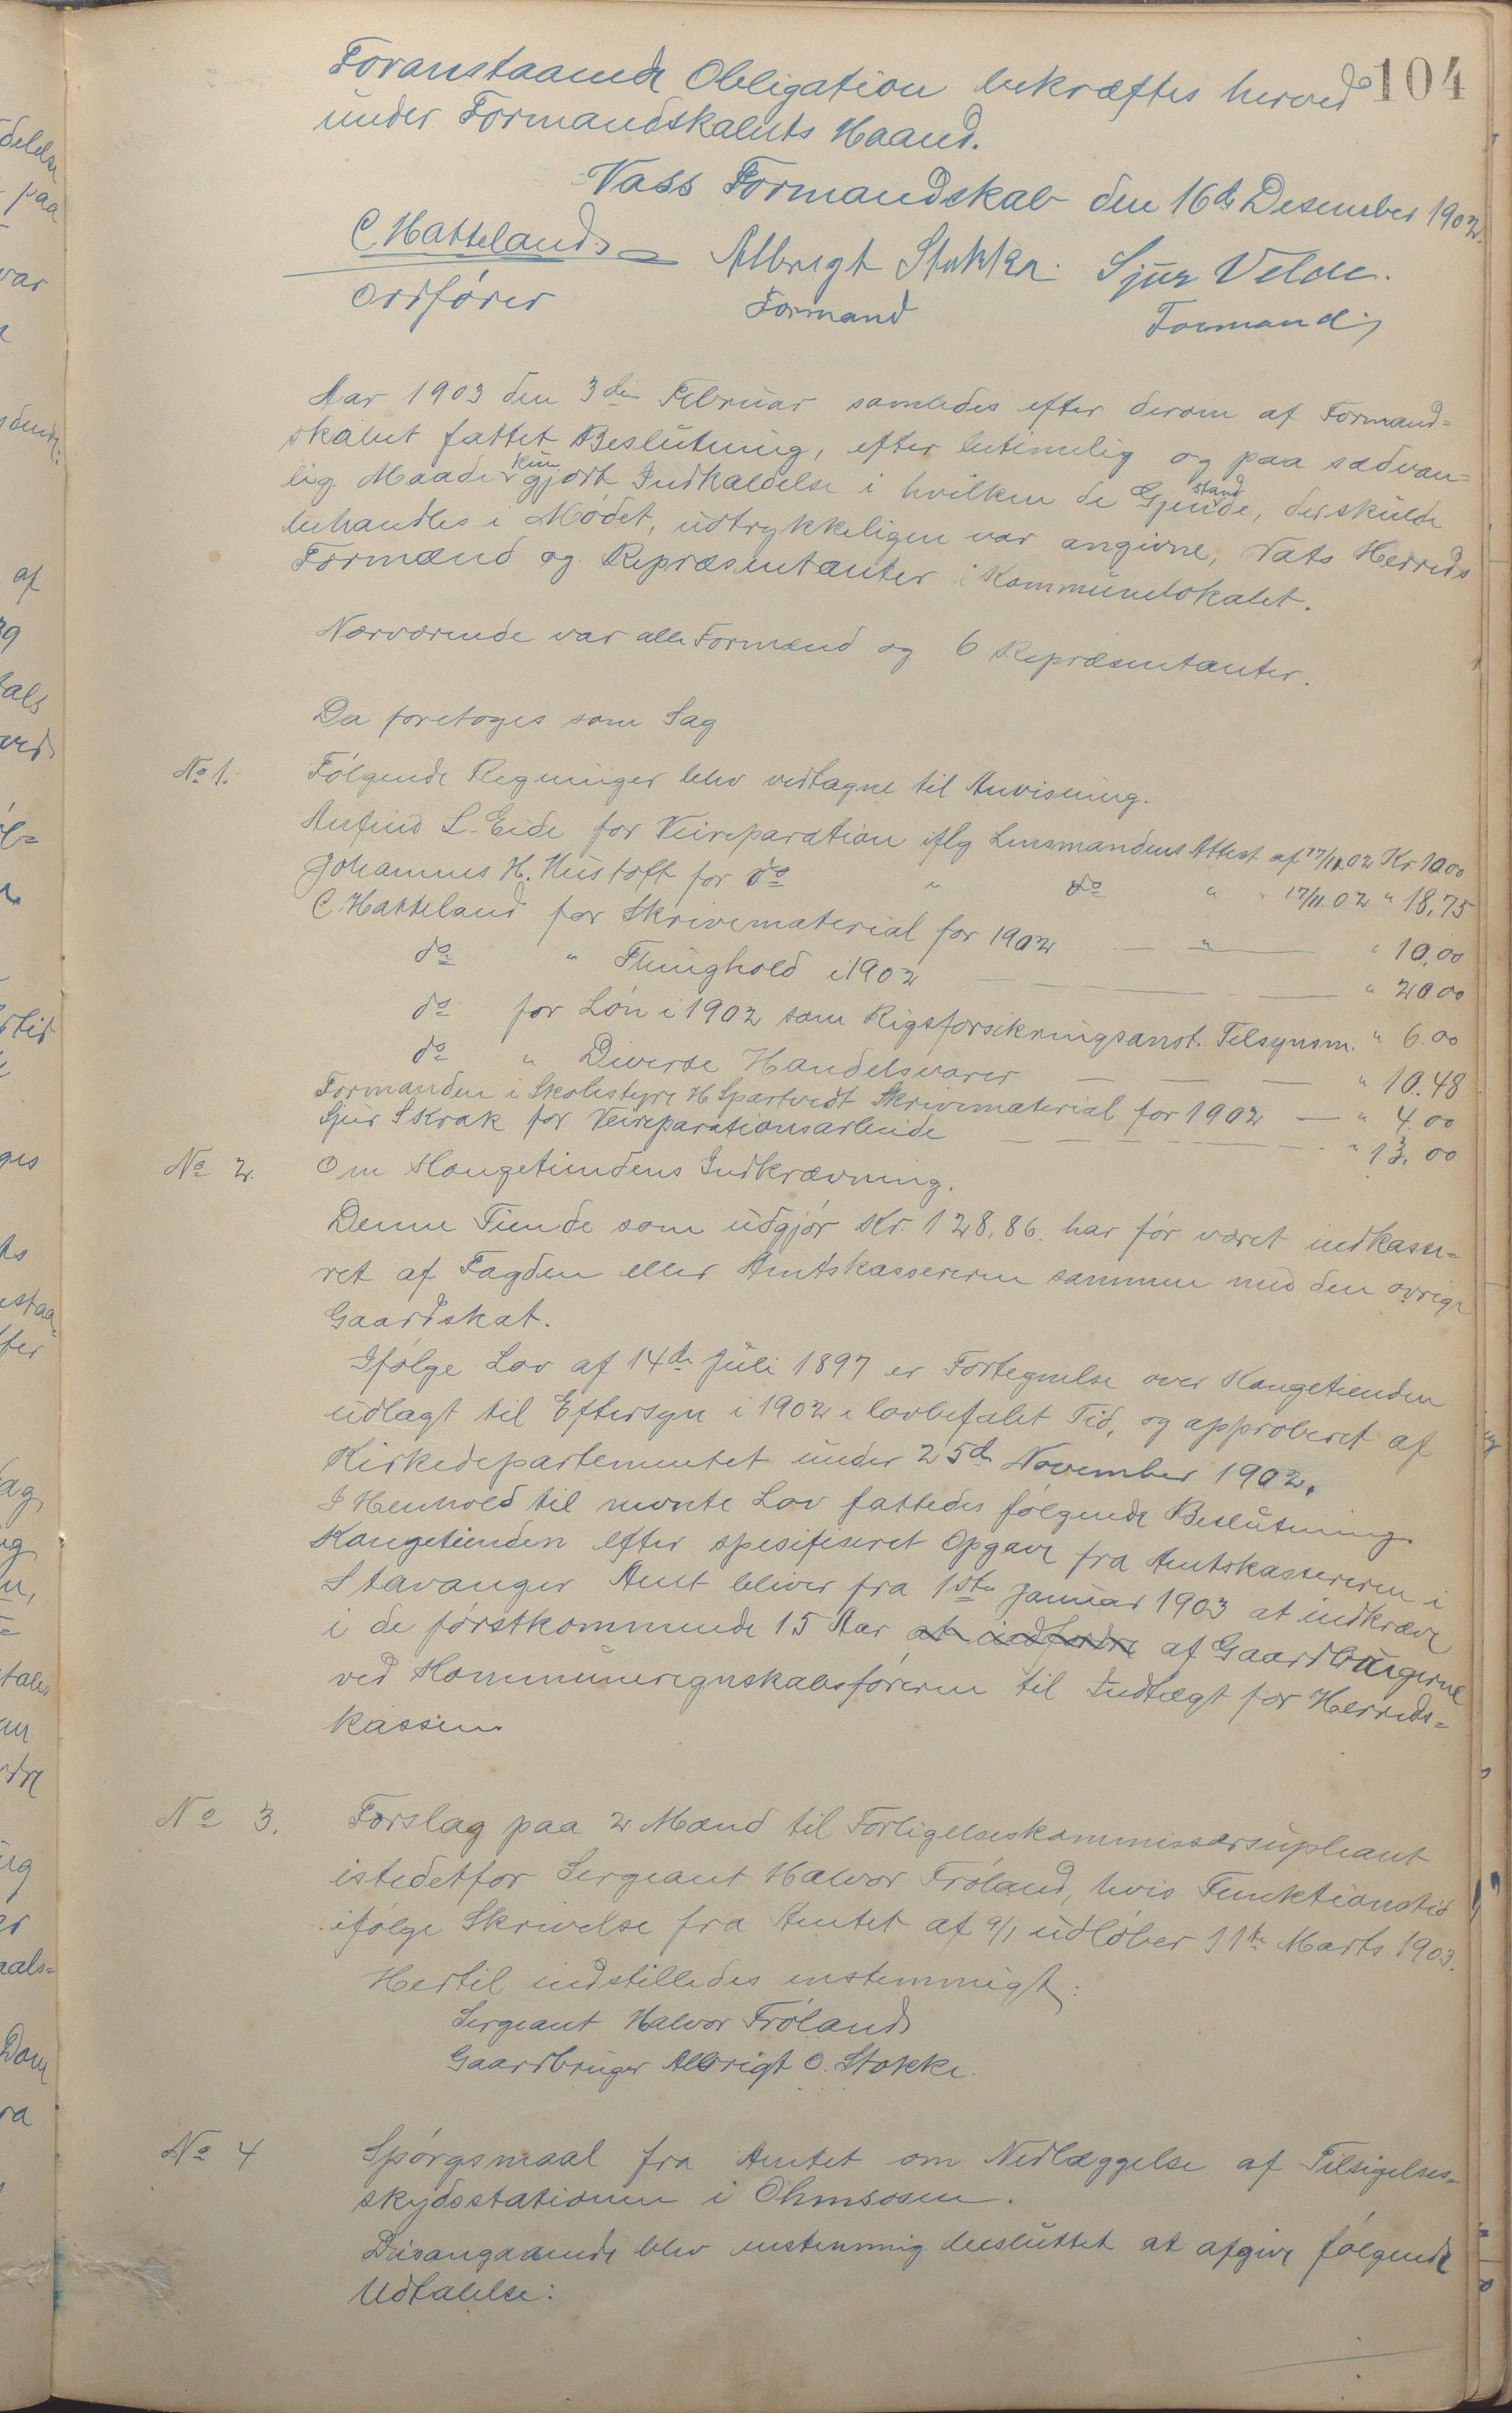 104
Foranstaaende Obligation bekræftes herved
under Formandskabets Haand.
Vass Formandskab den 16de Desember 1902.
C. Hatteland Albrigt Stokke. Sjur Velde.
Ordfører Formand Formand
Aar 1903 den 3die Februar samledes efter derom af Formand=
skabet fattet Beslutning, efter betimelig og paa sædvan=
lig Maade kungjort Indkaldelse i hvilken de Gjenstande, der skulde
behandles i Mødet, udtrykkeligen var angivne, Vats Herreds
Formænd og Repræsentanter i Kommunelokalet.
Nærværende var alle Formænd og 6 Repræsentanter.
Da foretoges som Sag
No 1. Følgende Regninger blev vedtagne til Anvisning.
Anfind L. Eide for Veireparation iflg Lensmandens Attest af 17/11.02 Kr. 10.00
Johannes H. Hustoft for do " do " " 17/11.02 " 18,75
C. Hatteland for Skrivematerial for 1902 — " — " 10.00
do " Thinghold i 1902 — " 20.00
do for Løn i 1902 som Rigsforsikringsanst. Tilsynsm. " 6.00
do " Diverse Handelsvarer — — — " 10.48
Formanden i Skolestyre H Spartvedt Skrivematerial for 1902 — " 4.00
Sjur S Krak for Veireparationsarbeide — " 13.00
No 2. Om Kongetiendens Indkrævning.
Denne Tiende som udgjør Kr. 128,86. har før været indkasse=
ret af Fogden eller Amtskassereren sammen med den øvrige
Gaardskat.
Ifølge Lov af 14de Juli 1897 er Fortegnelse over Kongetienden
udlagt til Eftersyn i 1902 i lovbefalet Tid, og approberet af
Kirkedepartementet under 25de November 1902.
I Henhold til nevnte Lov fattedes følgende Beslutning
Kongetienden efter spesifiseret Opgave fra Amtskassereren i
Stavanger Amt bliver fra 1ste Januar 1903 at indkræve
i de førstkommende 15 Aar at indfordre af Gaardbrugerne
ved Kommuneregnskabsføreren til Indtægt for Herreds=
kassen.
No 3. Forslag paa 2 Mænd til Forligelseskommissærsupleant
istedetfor Sergeant Halvor Frøland, hvis Funktionstid
ifølge Skrivelse fra Amtet af 9/1 udløber 11te Marts 1903.
Hertil indstilledes enstemmigt:
Sergeant Halvor Frøland
Gaardbruger Albrigt O. Stokke.
No 4 Spørgsmaal fra Amtet om Nedlæggelse af Tilsigelses=
skydsstationen i Ølmsosen.
Desangaaende blev enstemmig besluttet at afgive følgende
Udtalelse: